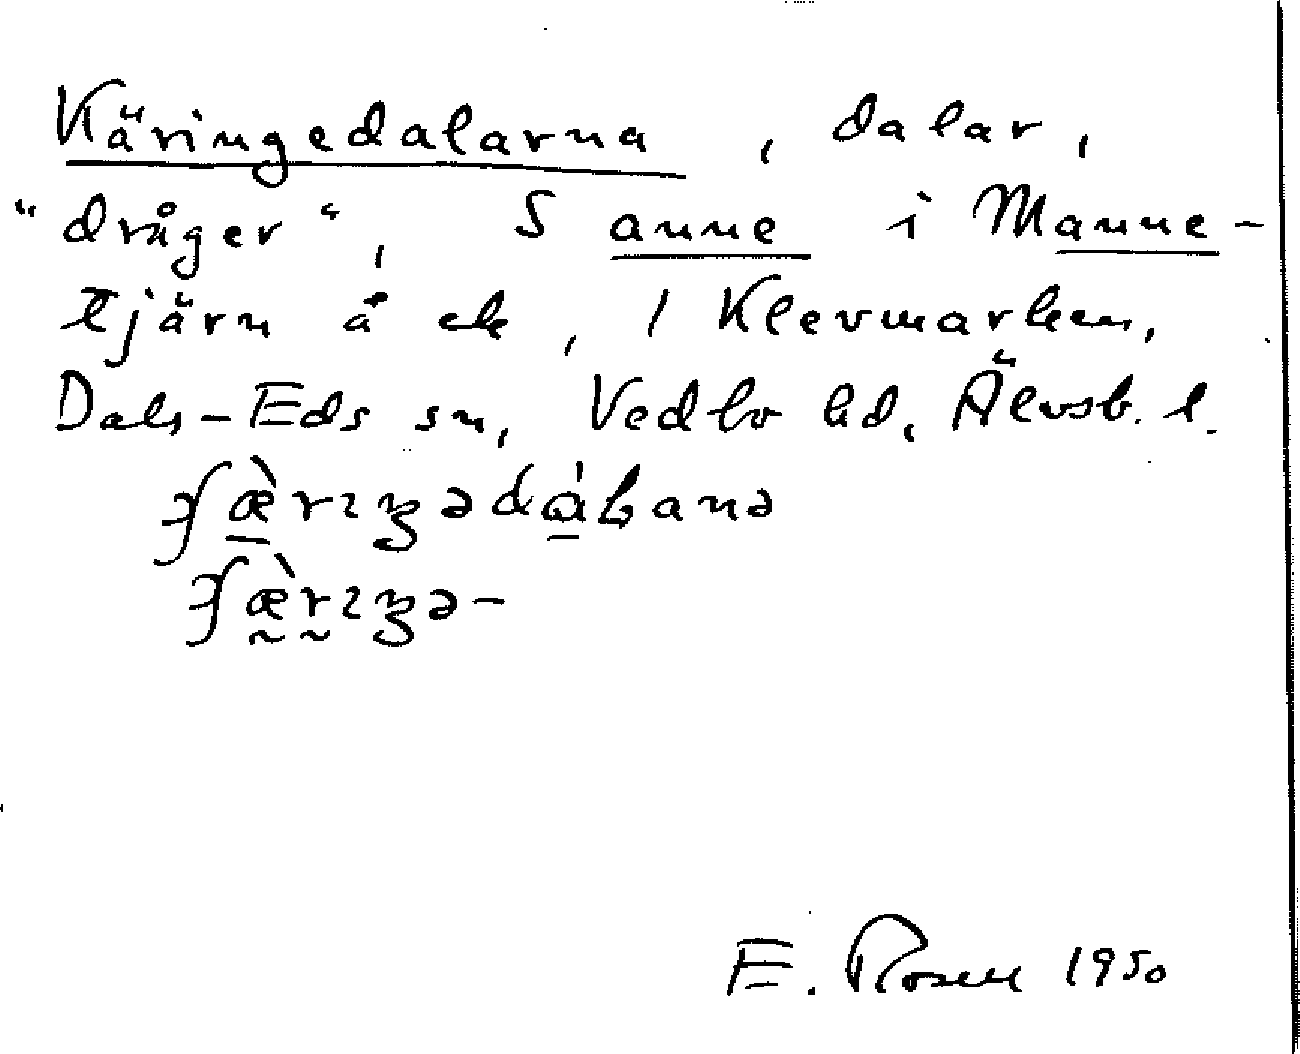 Käringedalarna, dalar,
"dråger", S anne i Manne-
tjärn å ek, 1 Klevmarken,
Dals-Eds sn, Vedbo hd, Älvsb. l.
E. Rosen 1950